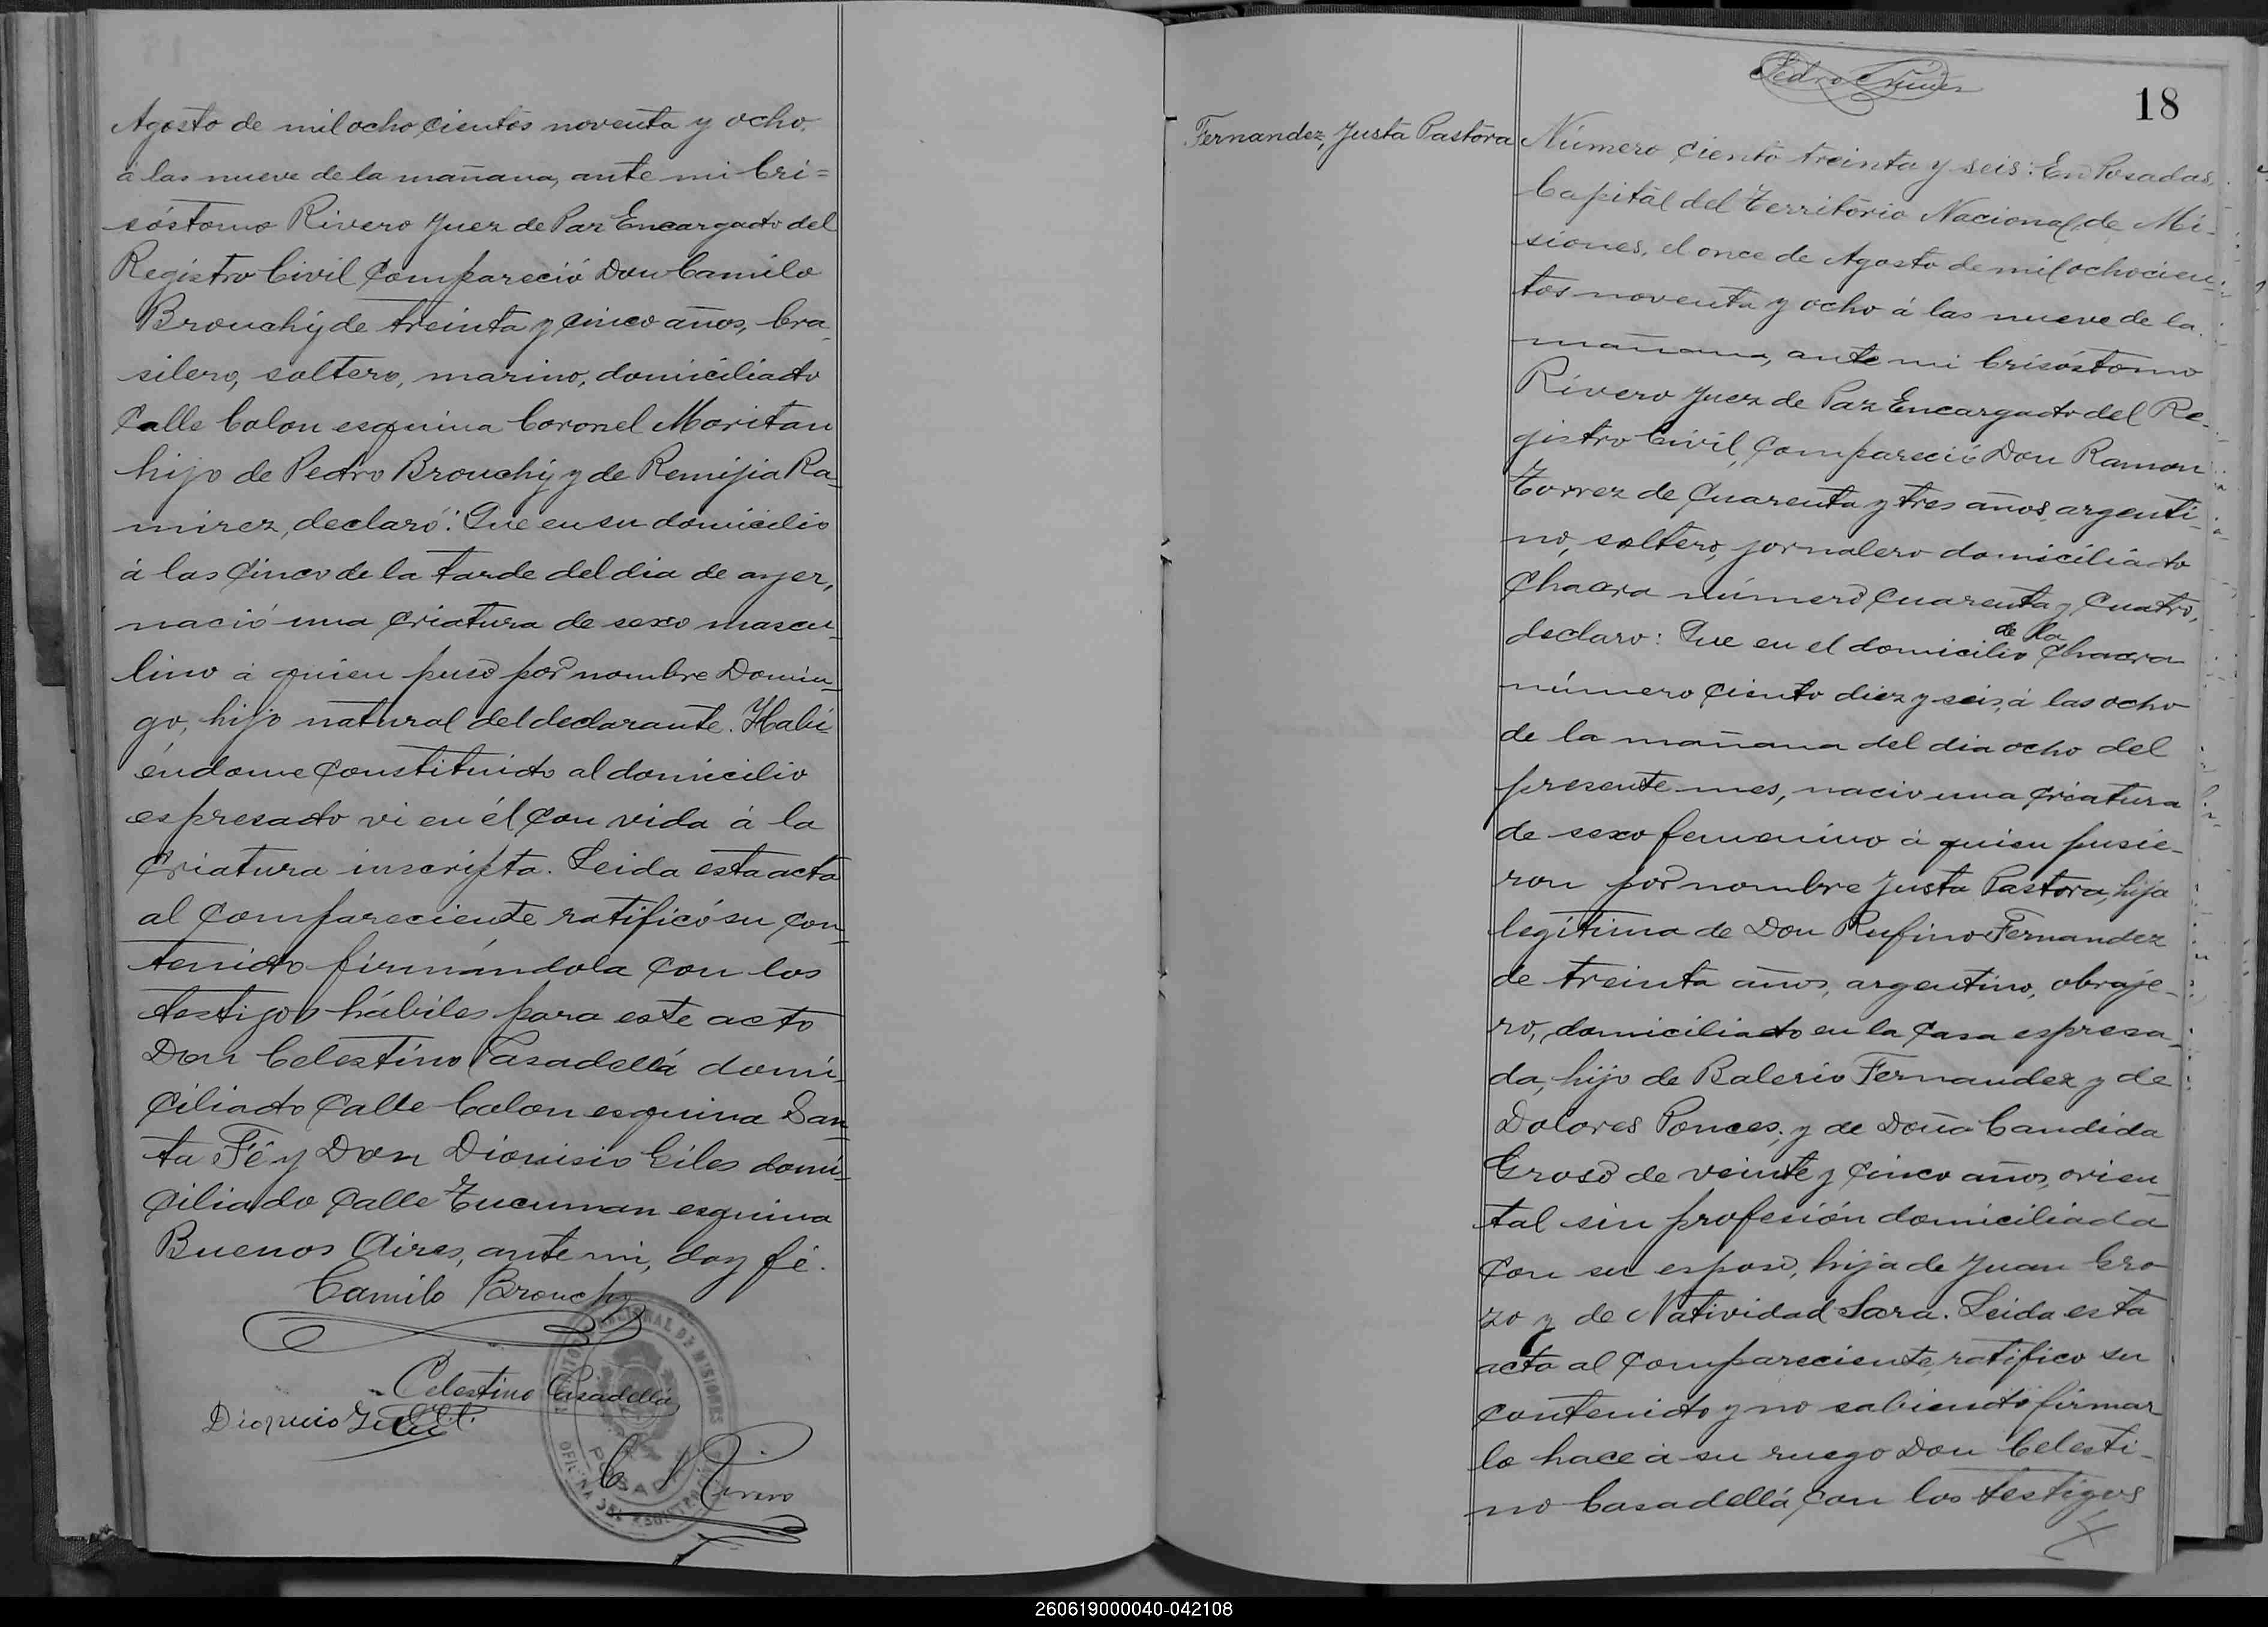 Agosto de mil ochocientos noventa y ocho,
á las nueve de la mañana, ante mi Cri=
sóstomo Rivero Juez de Paz Encargado del
Registro Civil compareció Don Camilo
Brouchy de treinta y cinco años, bra-
silero, soltero, marino, domiciliado
calle Colon esquina Coronel Moritan
hijo de Pedro Brouchy y de Remijia Ra-
mirez, declaró: Que en su domicilio
á las cinco de la tarde del dia de ayer,
nació una criatura de sexo mascu-
lino á quien puso por nombre Domin-
go, hijo natural del declarante. Habi-
éndome constituido al domicilio
espresado vi en él con vida á la
criatura inscripta. Leida esta acta
al compareciente ratificó su con-
tenido firmándola con los
testigos hábiles para este acto
Don Celestino Casadellá domi-
ciliado calle Colon esquina San-
ta Fé y Don Dionisio Giles domi-
ciliado calle Tucuman esquina
Buenos Aires, ante mi, doy fé.
Camilo Brouchy
Celestino Casadellá
Dionicio
C Rivero
TERRITORIO NACIONAL DE MISIONES
POSADAS
OFICINA DEL REGISTRO CIVIL
Pedro Nuñez
18
Fernandez, Justa Pastora
Número ciento treinta y seis: En Posadas,
Capital del Territorio Nacional de Mi-
siones, el once de Agosto de mil ochocien-
tos noventa y ocho á las nueve de la
mañana, ante mi Crisóstomo
Rivero Juez de Paz Encargado del Re-
gistro Civil, compareció Don Ramon
Torrez de cuarenta y tres años, argenti-
no, soltero, jornalero domiciliado
chacra número cuarenta y cuatro,
declaro: Que en el domicilio de la chacra
número ciento diez y seis, á las ocho
de la mañana del dia ocho del
presente mes, nacio una criatura
de sexo femenino á quien pusie-
ron por nombre Justa Pastora, hija
legítima de Don Rufino Fernandez
de treinta años, argentino, obraje-
ro, domiciliado en la casa espresa-
da, hijo de Balerio Fernandez y de
Dolores Ponces; y de Doña Candida
Groso de veinte y cinco años, orien-
tal sin profesión domiciliada
con su esposo, hija de Juan Gro-
zo y de Natividad Sara. Leida esta
acta al compareciente, ratifico su
contenido y no sabiendo firmar
lo hace á su ruego Don Celesti-
no Casadellá, con los testigos
260619000040-042108